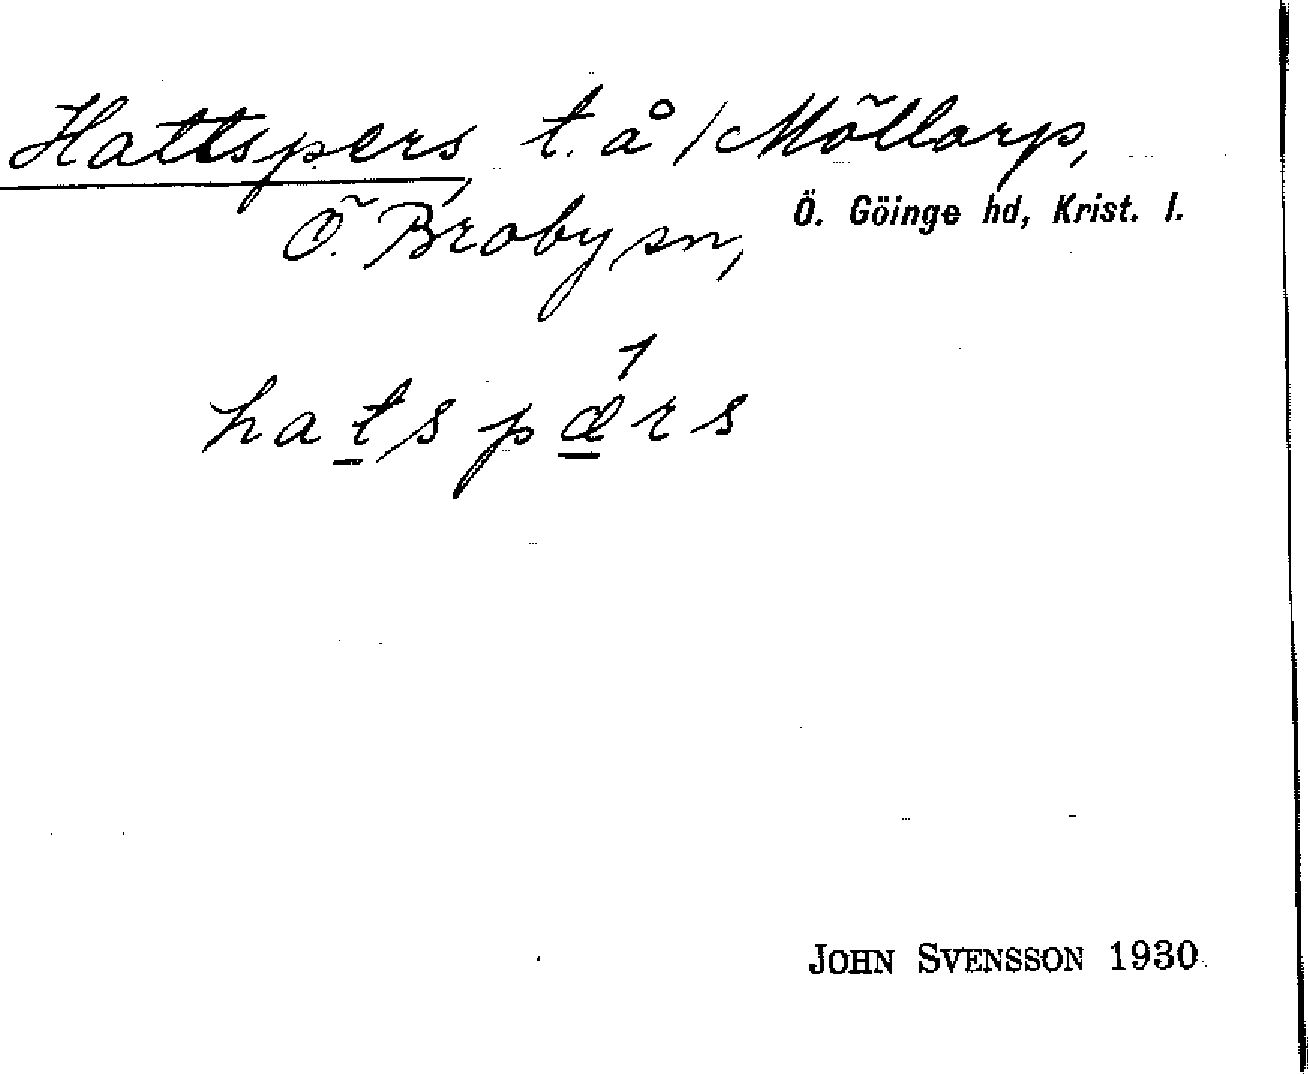 Hattspers, t. å /Möllarp,
Ö. Broby sn, Ö. Göinge hd, Krist. l.
hatspærs
JOHN SVENSSON 1930